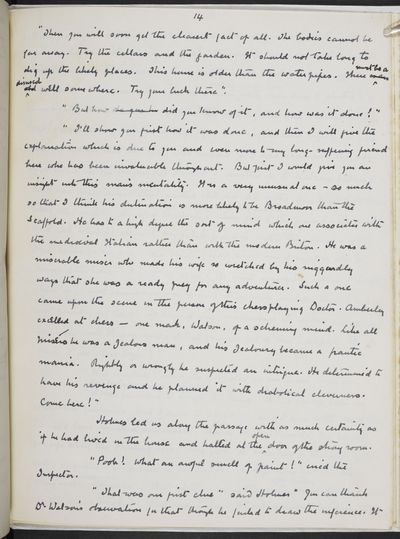 14
"Then you will soon get the clearest fact of all. The bodies cannot be
far away. Try the cellars and the garden. It should not take long to
dig up the likely places. This house is older than the water pipes. There must be a
disused well somewhere. Try your luck there".
"But how did you know of it, and how was it done?"
"I'll show you first how it was done, and then I will give the
explanation which is due to you and even more to my long-suffering friend
here who has been invaluable throughout. But first I would give you an
insight into this man's mentality. It is a very unusual one - so much
so that I think his destination is more likely to be Broadmoor than the
Scaffold. He has to a high degree the sort of mind which one associates with
the mediaeval Italian rather than with the modern Briton. He was a
miserable miser who made his wife so wretched by his niggardly
ways that she was a ready prey for any adventurer. Such a one
came upon the scene in the person of this chessplaying Doctor. Amberley
excelled at chess - one mark, Watson, of a scheming mind. Like all
misers he was a jealous man, and his jealousy became a frantic
mania. Rightly or wrongly he suspected an intrigue. He determined to
have his revenge and he planned it with diabolical cleverness.
Come here!"
Holmes led us along the passage with as much certainty as
if he had lived in the house and halted at the open door of the strong room.
"Pooh! What an awful smell of paint!" cried the
Inspector.
"That was our first clue" said Holmes "You can thank
Dr Watson's observation for that though he failed to draw the inference. It